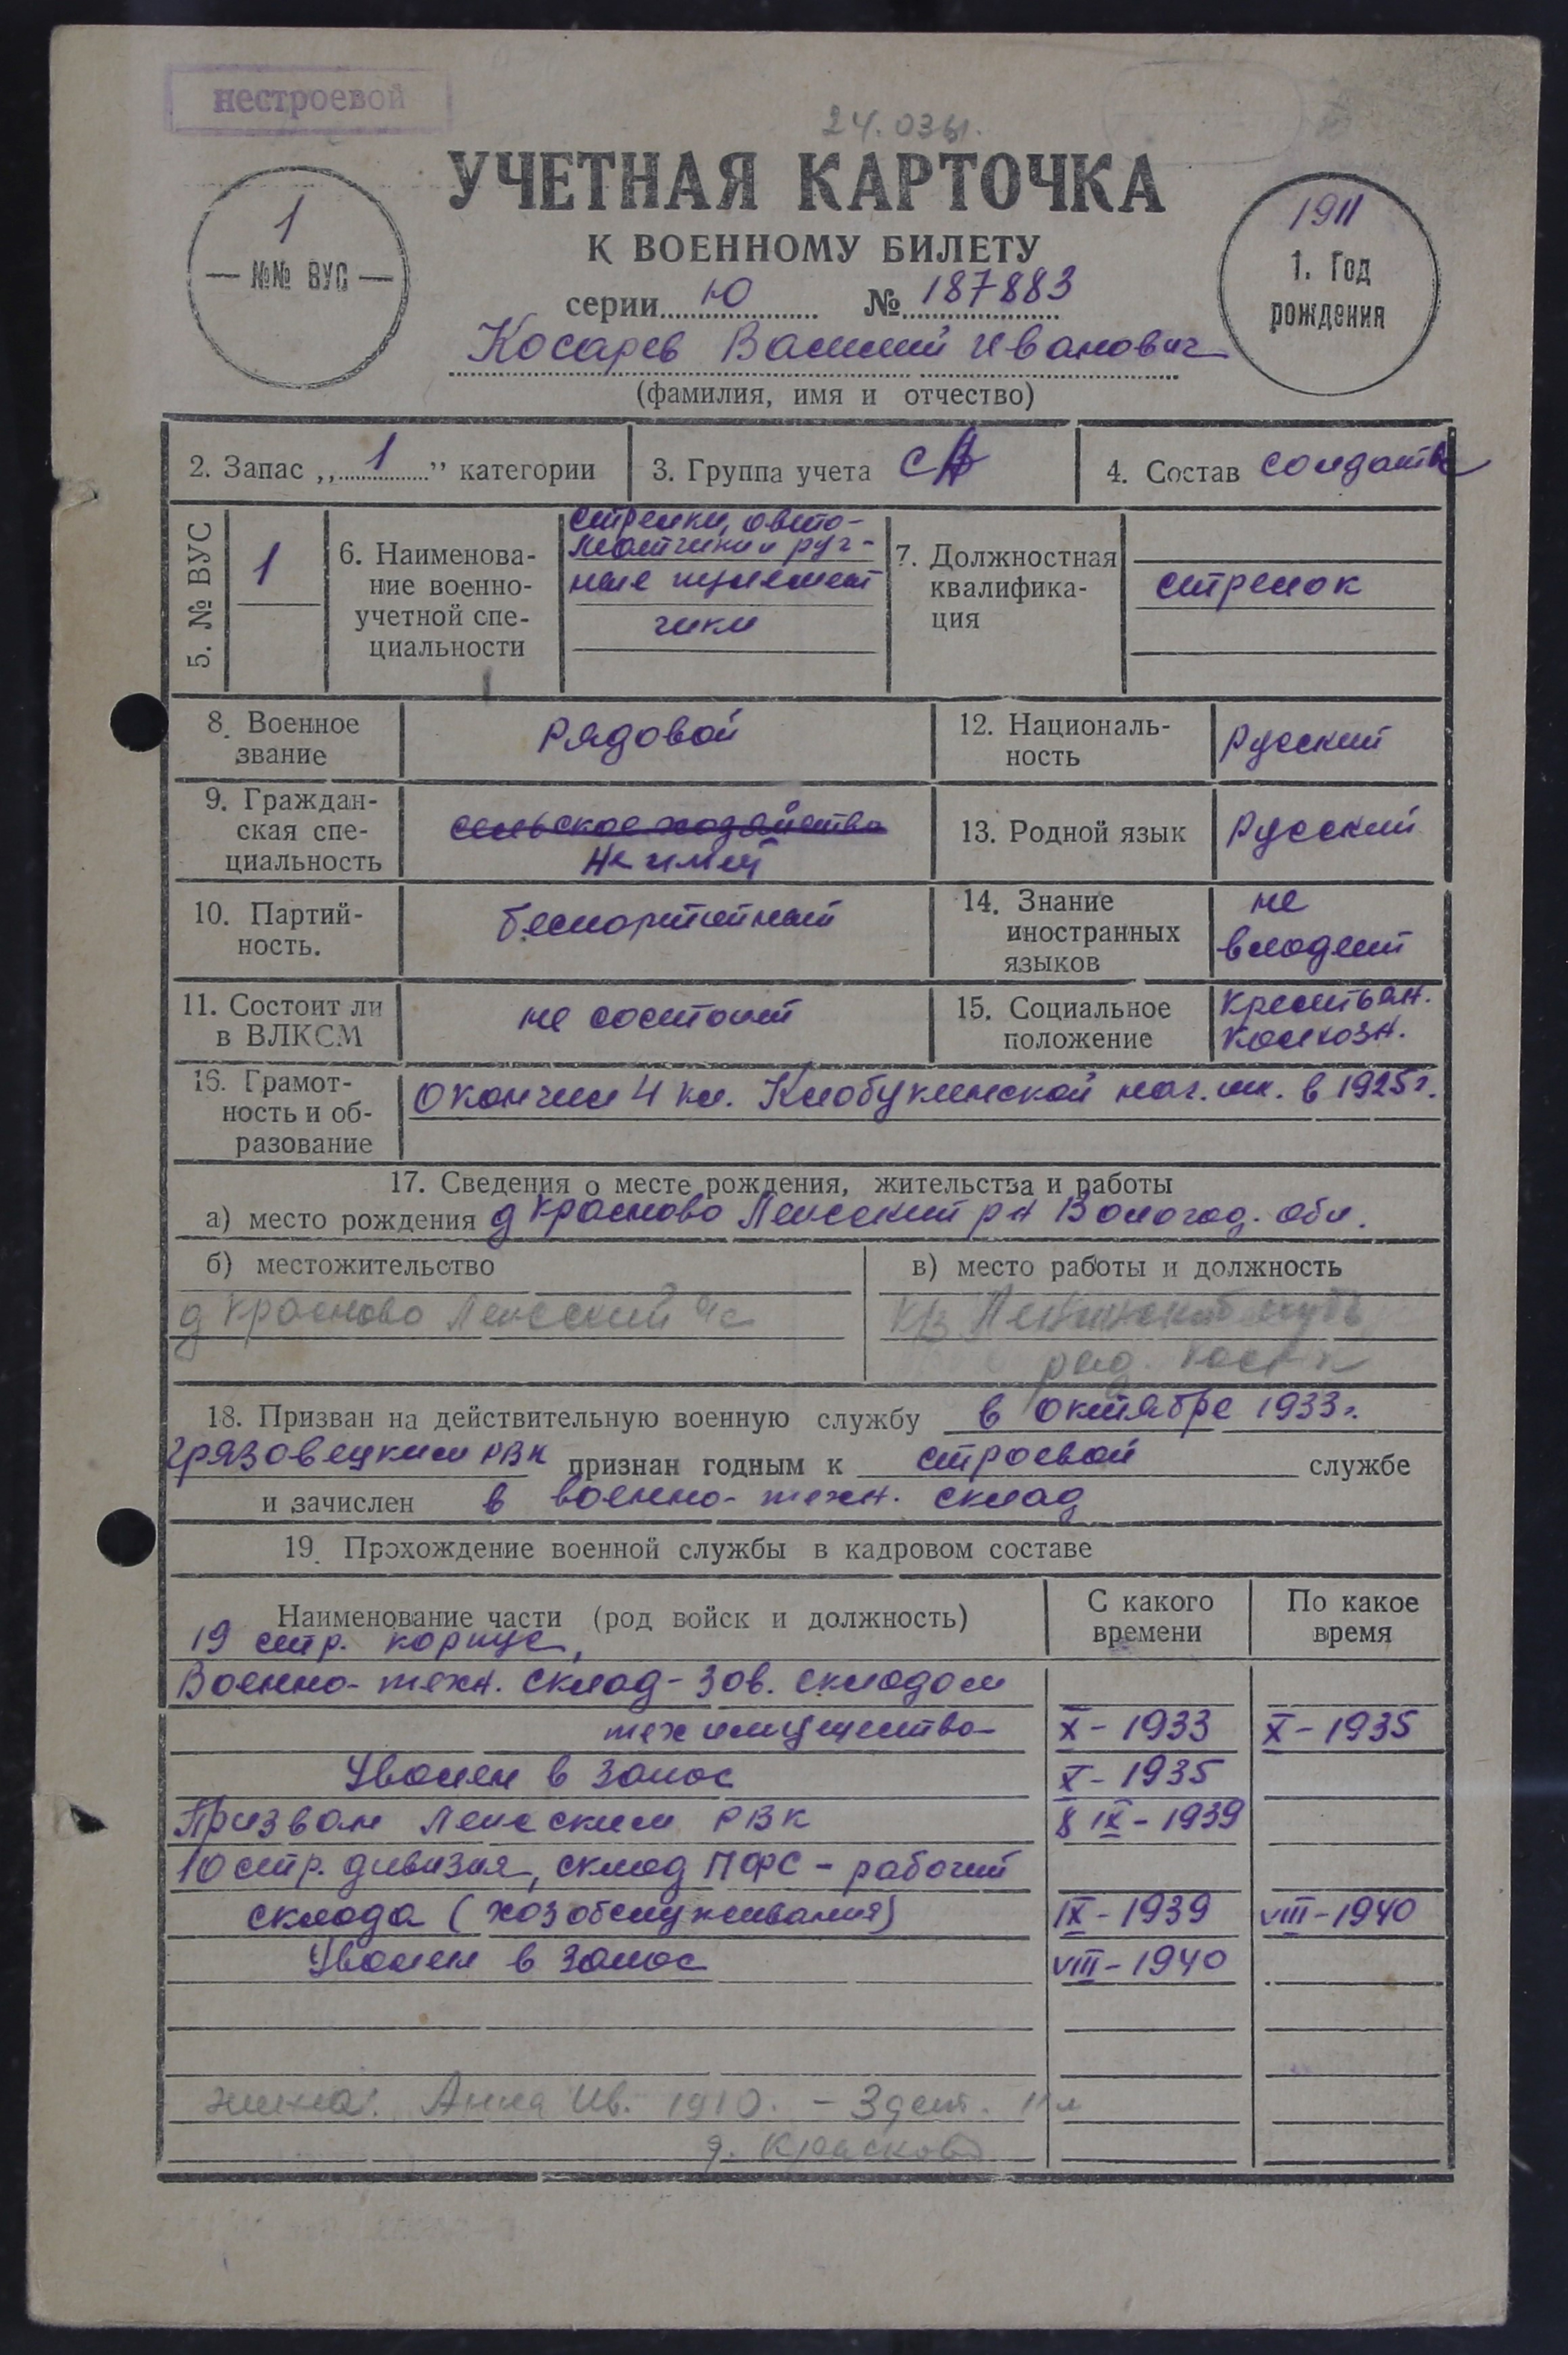 нестроевой
24.03
УЧЕТНАЯ КАРТОЧКА
К ВОЕННОМУ БИЛЕТУ
серии Ю № 187883
1
№№ ВУС
1911
1. Год
рождения
Косарев Василий Иванович
(фамилия, имя и отчество)
2. Запас „1” категории
3. Группа учета СА
4. Состав солдаты
5. № ВУС
1
6. Наименова-
ние военно-
учетной спе-
циальности
стрелки, авто-
матчики и руч-
ные пулемет
чики
7. Должностная
квалифика-
ция
стрелок
8. Военное
звание
рядовой
12. Националь-
ность
русский
9. Граждан-
ская спе-
циальность
сельское хозяйство
не имеет
13. Родной язык
русский
10. Партий-
ность.
беспартийный
14. Знание
иностранных
языков
не
владеет
11. Состоит ли
в ВЛКСМ
не состоит
15. Социальное
положение
крестьян.
колхозн.
16. Грамот-
ность и об-
разование
окончил 4 кл. Клобукинской нач. шк. в 1925 г.
17. Сведения о месте рождения, жительства и работы
а) место рождения д Красново Лежский р-н Вологод. обл.
б) местожительство
д Красново Лежский
в) место работы и должность
к/з Ленинский путь
18. Призван на действительную военную службу в октябре 1933 г.
Грязовецким РВК признан годным к строевой службе
и зачислен в военно-техн. склад
19. Прохождение военной службы в кадровом составе
Наименование части (род войск и должность)
С какого
времени
По какое
время
19 стр. корпус,
Военно-техн. склад - зав. складом
тех имущества X - 1933 X - 1935
Уволен в запас X - 1935
Призван Лежским РВК 8 IX - 1939
10 стр. дивизия, склад ПФС - рабочий
склада (хозобслуживания) IX - 1939 VIII - 1940
Уволен в запас VIII - 1940
жена: Анна Ив. 1910. - 3 дет. 11 л
д. Красково